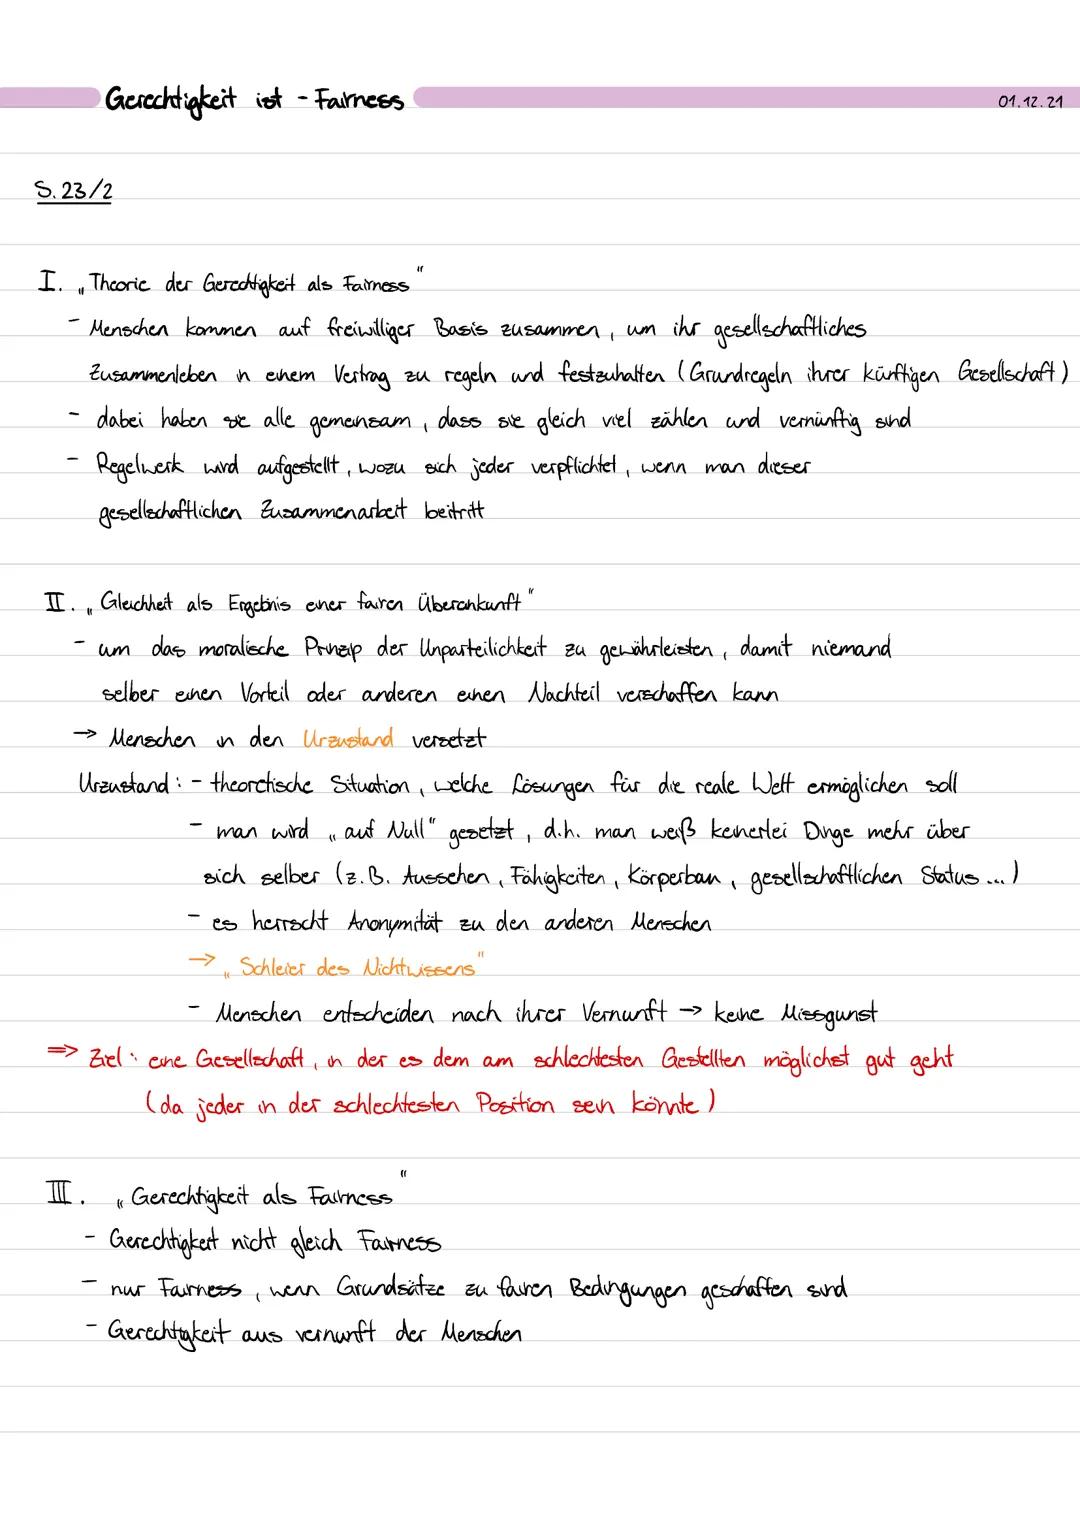 Gerechtigkeit ist - Fairness
01.12.21
S. 23/2
I. „Theorie der Gerechtigkeit als Fairness"
- Menschen kommen auf freiwilliger Basis zusammen, um ihr gesellschaftliches
Zusammenleben in einem Vertrag zu regeln und festzuhalten (Grundregeln ihrer künftigen Gesellschaft)
- dabei haben sie alle gemeinsam, dass sie gleich viel zählen und vernünftig sind
- Regelwerk wird aufgestellt, wozu sich jeder verpflichtet, wenn man dieser
gesellschaftlichen Zusammenarbeit beitritt
II. „Gleichheit als Ergebnis einer fairen Übereinkunft"
- um das moralische Prinzip der Unparteilichkeit zu gewährleisten, damit niemand
selber einen Vorteil oder anderen einen Nachteil verschaffen kann
→ Menschen in den Urzustand versetzt
Urzustand: - theoretische Situation, welche Lösungen für die reale Welt ermöglichen soll
- man wird „auf Null" gesetzt, d.h. man weiß keinerlei Dinge mehr über
sich selber (z.B. Aussehen, Fähigkeiten, Körperbau, gesellschaftlichen Status ...)
- es herrscht Anonymität zu den anderen Menschen
→ „Schleier des Nichtwissens"
- Menschen entscheiden nach ihrer Vernunft → keine Missgunst
⇒ Ziel: eine Gesellschaft, in der es dem am schlechtesten Gestellten möglichst gut geht
(da jeder in der schlechtesten Position sein könnte)
III. „Gerechtigkeit als Fairness"
- Gerechtigkeit nicht gleich Fairness
- nur Fairness, wenn Grundsätze zu fairen Bedingungen geschaffen sind
- Gerechtigkeit aus vernunft der Menschen